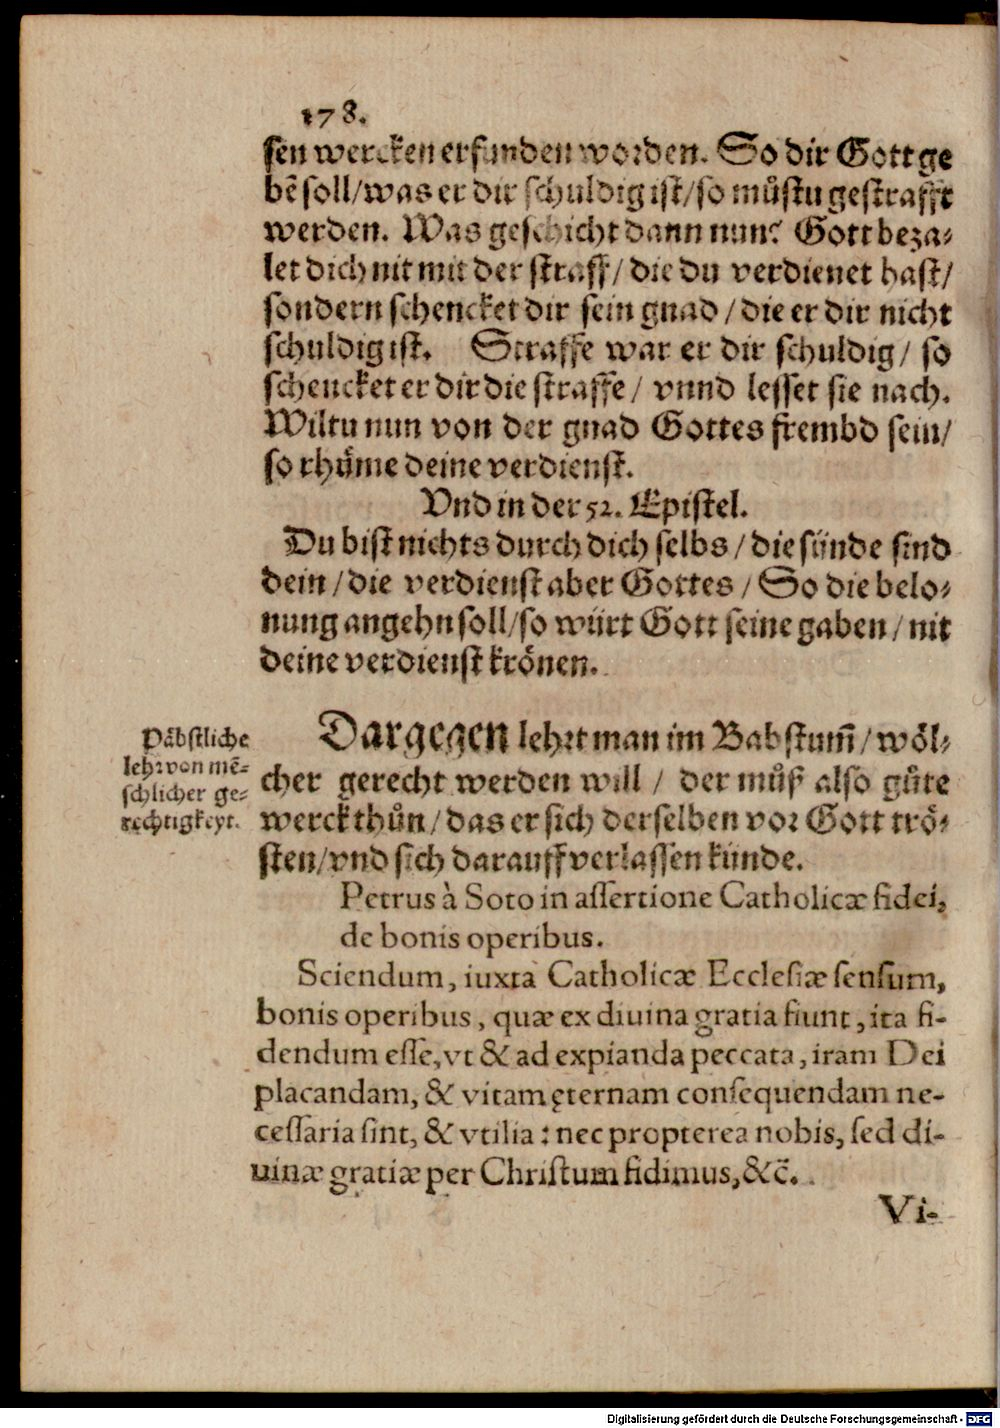 178.
sen wercken erfunden worden. So dir Gott ge
bẽ soll/was er dir schuldig ist/so můstu gestrafft
werden. Was geschicht dann nun? Gott beza⸗
let dich nit mit der straff/ die du verdienet hast/
sondern schencket dir sein gnad / die er dir nicht
schuldig ist. Straffe war er dir schuldig/ so
schencket er dir die straffe/ vnnd lesset sie nach.
Wiltu nun von der gnad Gottes frembd sein/
so rhůme deine verdienst.
Vnd in der 52. Epistel.
Du bist nichts durch dich selbs / die sünde sind
dein / die verdienst aber Gottes / So die belo⸗
nung angehn soll/so würt Gott seine gaben / nit
deine verdienst krönen.
Päbstliche
lehr von mẽ⸗
schlicher ge⸗
rechtigkeyt.
Dargegen lehrt man im Babstum̃/ wöl⸗
cher gerecht werden will / der můß also gůte
werck thůn/ das er sich derselben vor Gott trö⸗
sten/vnd sich darauff verlassen künde.
Petrus à Soto in assertione Catholicæ fidei,
de bonis operibus.
Sciendum, iuxta Catholicæ Ecclesiæ sensum,
bonis operibus, quæ ex diuina gratia fiunt, ita fi-
dendum esse, vt & ad expianda peccata, iram Dei
placandam, & vitam ęternam consequendam ne-
cessaria sint, & vtilia: nec propterea nobis, sed di-
uinæ gratiæ per Christum fidimus, &c̃.
Vi-
Digitalisierung gefördert durch die Deutsche Forschungsgemeinschaft - DFG